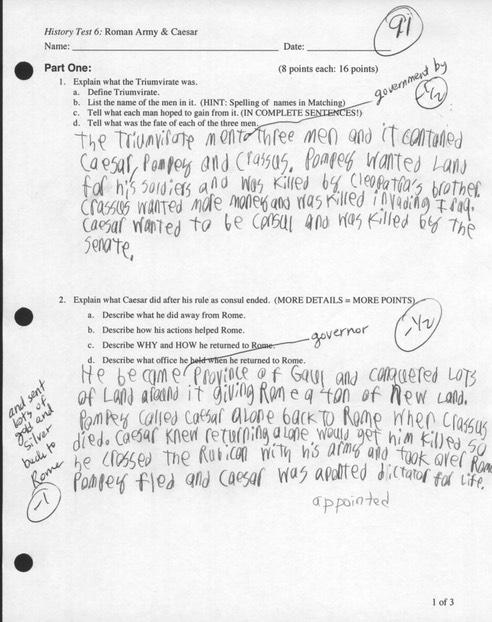 91
History Test 6: Roman Army & Caesar
Name: Date:
Part One: (8 points each: 16 points)
1. Explain what the Triumvirate was.
a. Define Triumvirate.
b. List the name of the men in it. (HINT: Spelling of names in Matching)
c. Tell what each man hoped to gain from it. (IN COMPLETE SENTENCES!)
d. Tell what was the fate of each of the three men.
government by
-1/2
the Triumvirate ment three men and it contaned
Caesar, Pompey and Crassus. Pompey wanted Land
for his soldiers and was killed by Cleopatra's brother.
Crassus wanted more money and was killed invading Iraq.
Caesar wanted to be consul and was killed by the
senate.
2. Explain what Caesar did after his rule as consul ended. (MORE DETAILS = MORE POINTS)
a. Describe what he did away from Rome.
b. Describe how his actions helped Rome.
c. Describe WHY and HOW he returned to Rome.
d. Describe what office he held when he returned to Rome.
governor
-1/2
He became Province of Gaul and conquered Lots
of Land around it giving Rome a ton of New Land.
Pompey called caesar alone back to Rome when Crassus
died. Caesar knew returning alone would get him killed so
he crossed the Rubicon with his army and took over Rome
Pompey fled and Caesar was aponted dictator for life.
appointed
and sent
lots of
gold and
silver
back to
Rome
-1
1 of 3